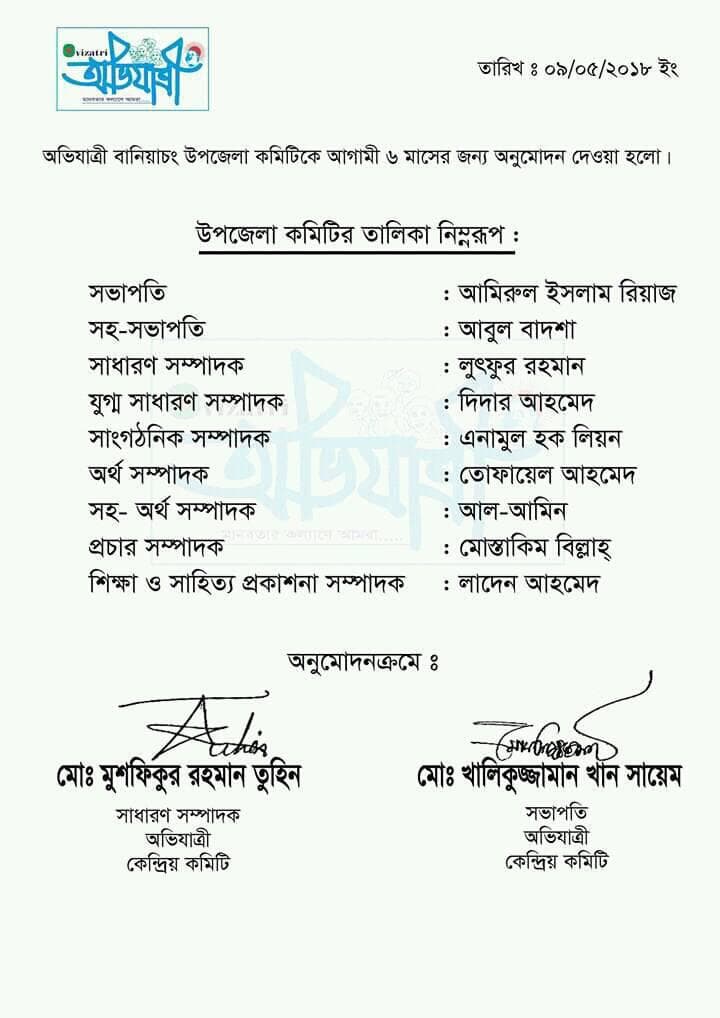 Ovizatri
অভিযাত্রী
মানবতার কল্যাণে আমরা.....
তারিখ ঃ ০৯/০৫/২০১৮ ইং
অভিযাত্রী বানিয়াচং উপজেলা কমিটিকে আগামী ৬ মাসের জন্য অনুমোদন দেওয়া হলো।
উপজেলা কমিটির তালিকা নিম্নরূপ :
সভাপতি : আমিরুল ইসলাম রিয়াজ
সহ-সভাপতি : আবুল বাদশা
সাধারণ সম্পাদক : লুৎফুর রহমান
যুগ্ম সাধারণ সম্পাদক : দিদার আহমেদ
সাংগঠনিক সম্পাদক : এনামুল হক লিয়ন
অর্থ সম্পাদক : তোফায়েল আহমেদ
সহ- অর্থ সম্পাদক : আল-আমিন
প্রচার সম্পাদক : মোস্তাকিম বিল্লাহ্
শিক্ষা ও সাহিত্য প্রকাশনা সম্পাদক : লাদেন আহমেদ
Ovizatri
অভিযাত্রী
মানবতার কল্যাণে আমরা.....
অনুমোদনক্রমে ঃ
মোঃ মুশফিকুর রহমান তুহিন
সাধারণ সম্পাদক
অভিযাত্রী
কেন্দ্রিয় কমিটি
মোঃ খালিকুজ্জামান খান সায়েম
সভাপতি
অভিযাত্রী
কেন্দ্রিয় কমিটি